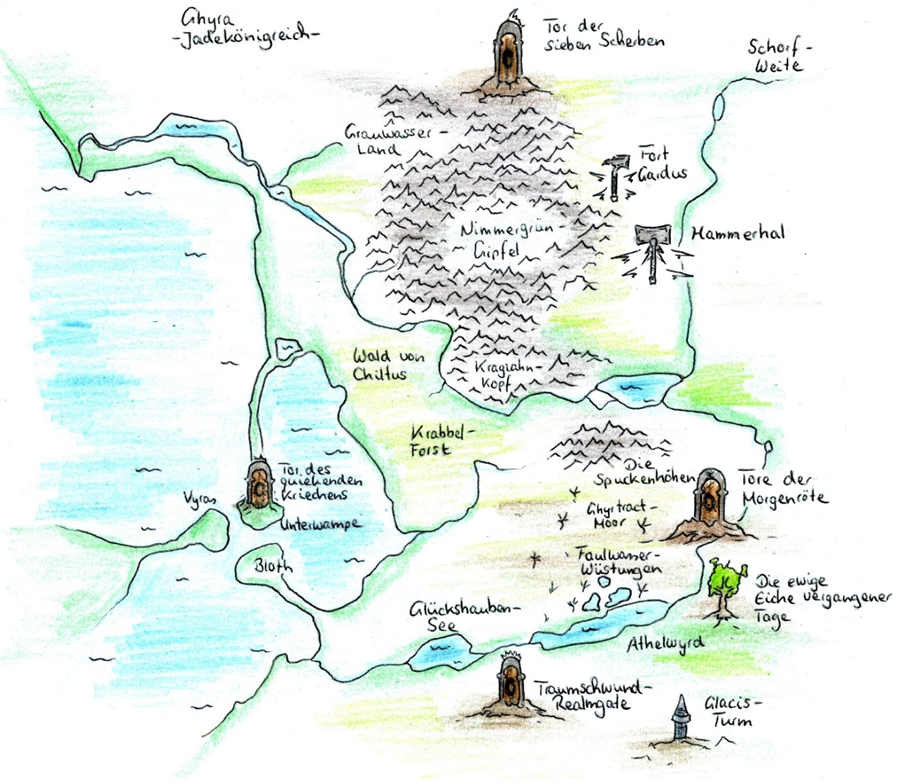 Ghyra
-Jadekönigreich-
Tor der
sieben Scherben
Schorf-
Weite
Grauwasser-
Land
Fort
Gardus
Nimmergrün-
Gipfel
Hammerhal
Wald von
Chiltus
Kragzahn-
Kopf
Krabbel-
Forst
Tor des
quiekenden
Kriechens
Die
Spuckenhöhen
Tore der
Morgenröte
Vyras
Unterwampe
Ghyrtract-
Moor
Bloth
Faulwasser-
Wüstungen
Die ewige
Eiche vergangener
Tage
Glückshauben-
See
Athelwyrd
Traumschwund-
Realmgate
Glacis-
Turm